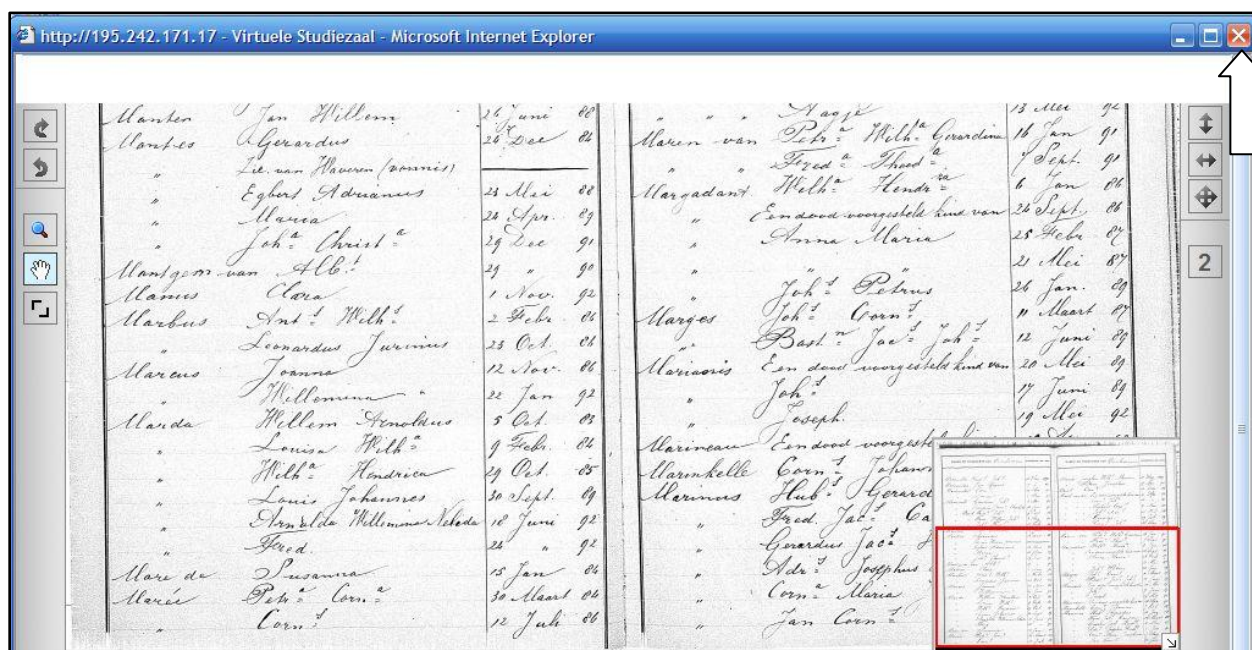 http://195.242.171.17 - Virtuele Studiezaal - Microsoft Internet Explorer
Manten Jan Willem 26 Juni 88
Mantjes Gerardus 26 Dec 84
" Zie van Waveren (vonnis)
" Egbert Adrianus 23 Mei 88
" Maria 24 Apr. 89
" Joh.ª Christ.ª 29 Dec 91
Mantgem van Alb.t 29 " 90
Manus Clara 1 Nov. 92
Marbus Ant.s Wilh.s 2 Febr. 86
" Leonardus Jurinus 23 Oct. 86
Marcus Joanna 12 Nov. 86
" Willemina 22 Jan 92
Marda Willem Arnoldus 5 Oct. 83
" Louisa Wilh.ª 9 Febr. 84
" Wilh.ª Hendrica 29 Oct. 85
" Louis Johannes 30 Sept. 89
" Arnolda Willemina Neleda 18 Juni 92
" Fred. 24 " 92
Mare de Susanna 15 Jan 84
Marée Petr.ª Corn.ª 30 Maart 84
" Corn.s 12 Juli 86
" " Aagje 13 Mei 92
Maren van Petr.ª Wilh.ª Gerardina 16 Jan 91
" Fred.ª Theod.ª 7 Sept. 91
Margadant Wilh.ª Hendr.ca 6 Jan 86
" Een dood voorgesteld kind van 26 Sept. 86
" Anna Maria 25 Febr. 87
" " 21 Mei 87
" Joh.s Petrus 26 Jan. 89
Marges Joh.s Corn.s 11 Maart 87
" Bast.n Jac.s Joh.s 12 Juni 89
Mariaoris Een dood voorgesteld kind van 20 Mei 89
" Joh.s 17 Juni 89
" Joseph. 19 Mei 92
Marineau Een dood voorgest
Marinkelle Corn.s Johann
Marinus Hub.s Gerard
" Fred. Jac.s Ca
" Gerardus Jac.s
" Adr.s Josephus
" Corn.ª Maria
" Jan Corn.s
2